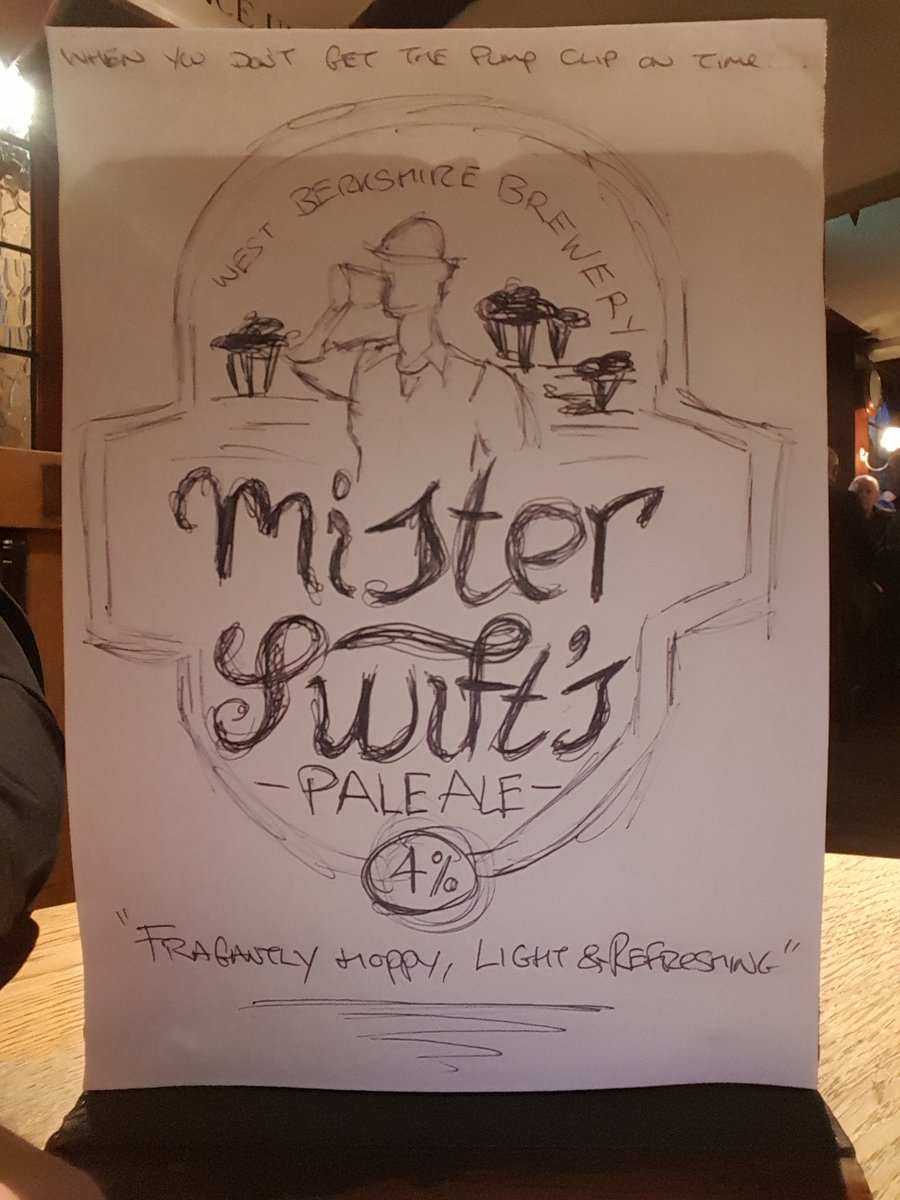 WHEN YOU DON'T GET THE PUMP CLIP ON TIME...
WEST BERKSHIRE BREWERY
Mister
Swift's
- PALE ALE -
4%
"FRAGANTLY HOPPY, LIGHT & REFRESHING"